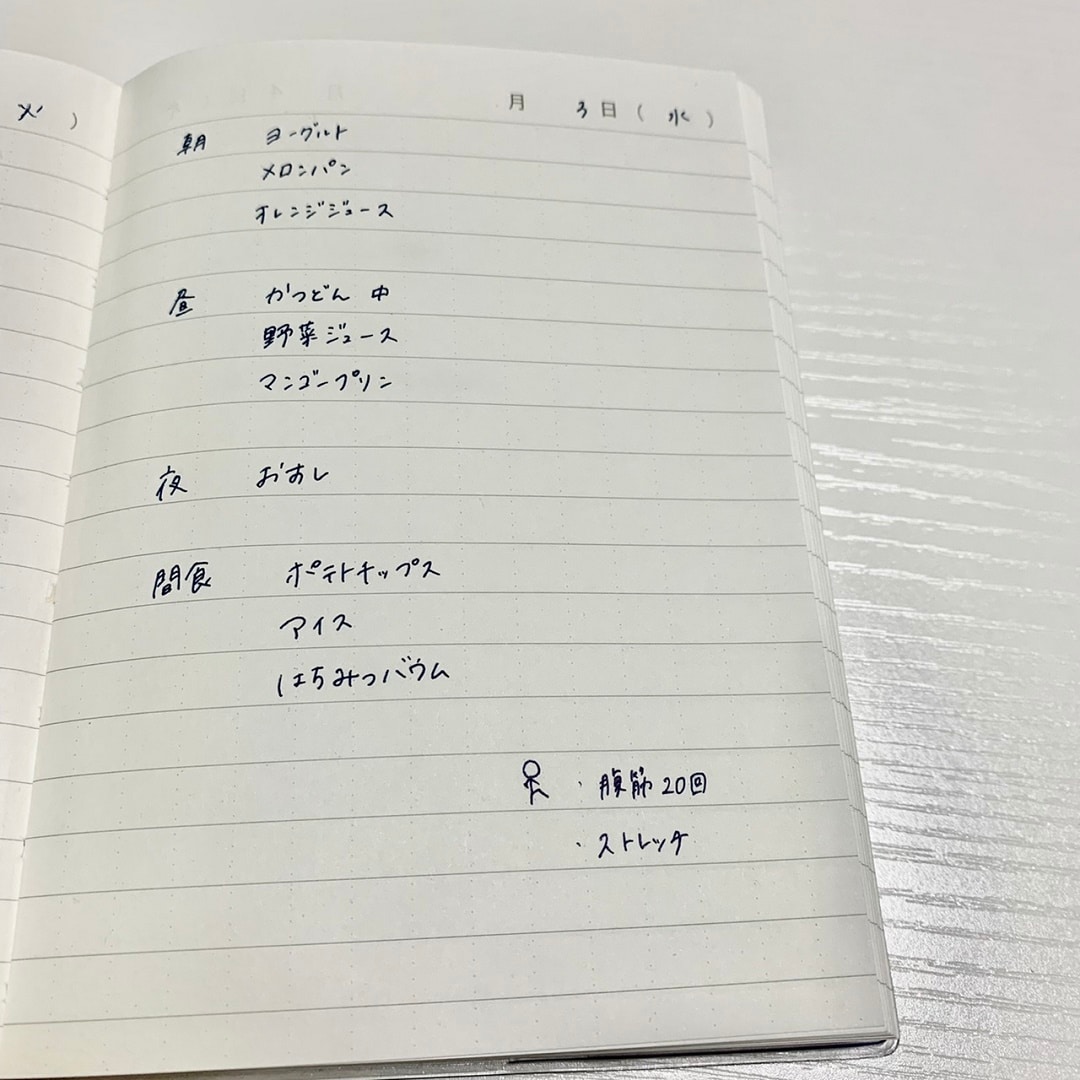 火)
月 3日(水)
朝 ヨーグルト
メロンパン
オレンジジュース
昼 かつどん 中
野菜ジュース
マンゴープリン
夜 おすし
間食 ポテトチップス
アイス
はちみつバウム
・腹筋20回
・ストレッチ